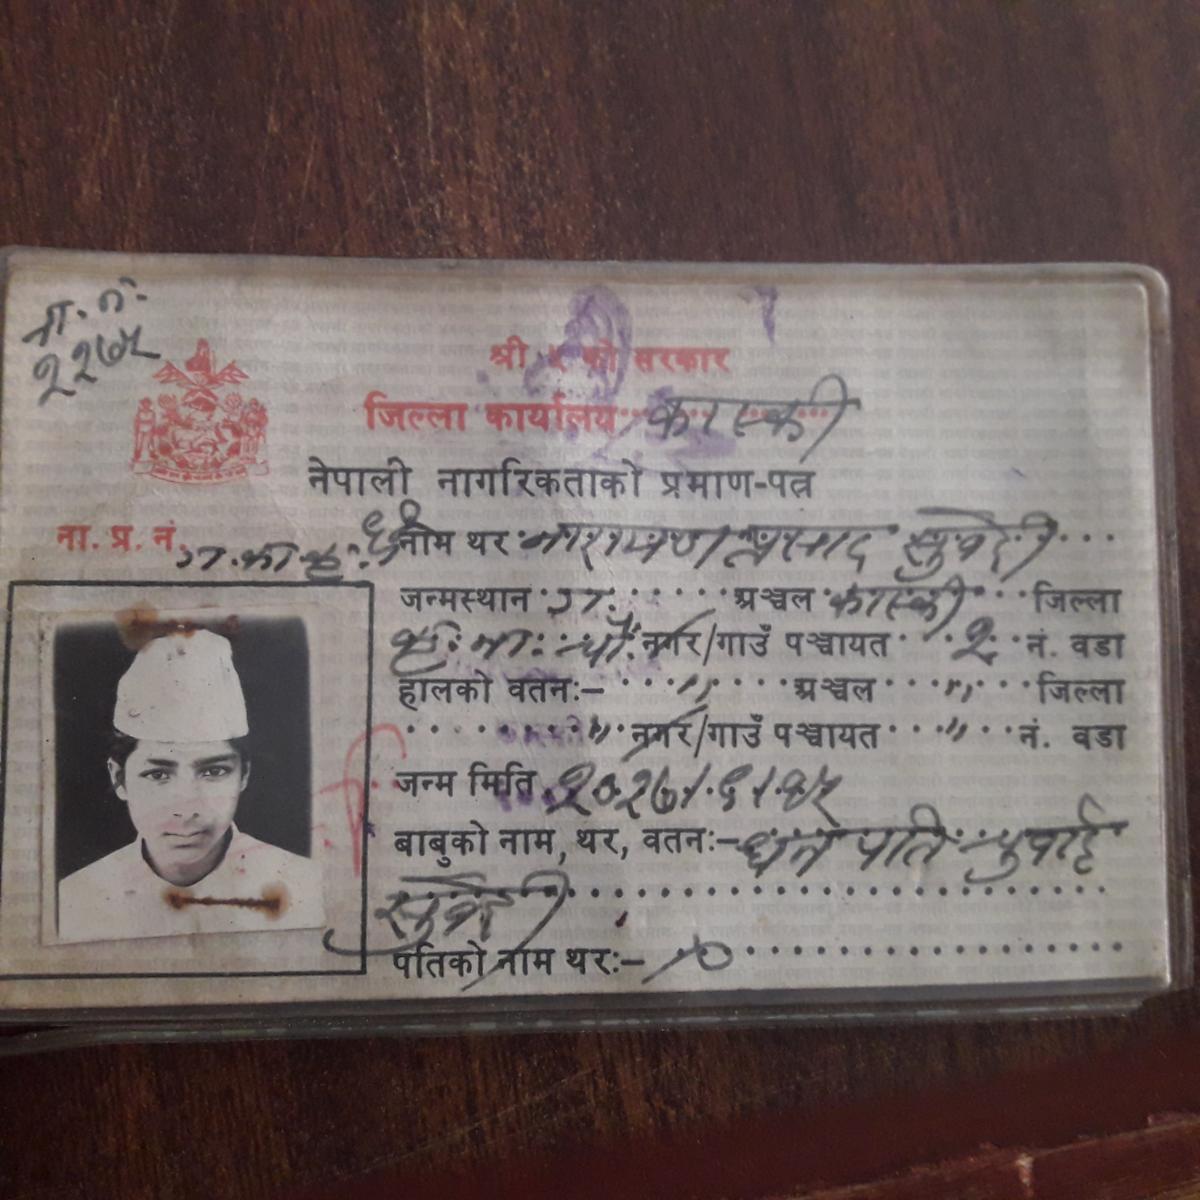 ना. नं.
२२७५
श्री ५ को सरकार
जिल्ला कार्यालय कास्की
नेपाली नागरिकताको प्रमाण-पत्र
ना. प्र. नं.
नाम थर नारायण प्रसाद सुवेदी
जन्मस्थान गं. अञ्चल कास्की जिल्ला
नगर/गाउँ पञ्चायत २ नं. वडा
हालको वतनः- ,, अञ्चल ,, जिल्ला
,, नगर/गाउँ पञ्चायत ,, नं. वडा
जन्म मिति २०२७।६।१५
बाबुको नाम, थर, वतनः- धन पति
सुवेदी
पतिको नाम थरः-